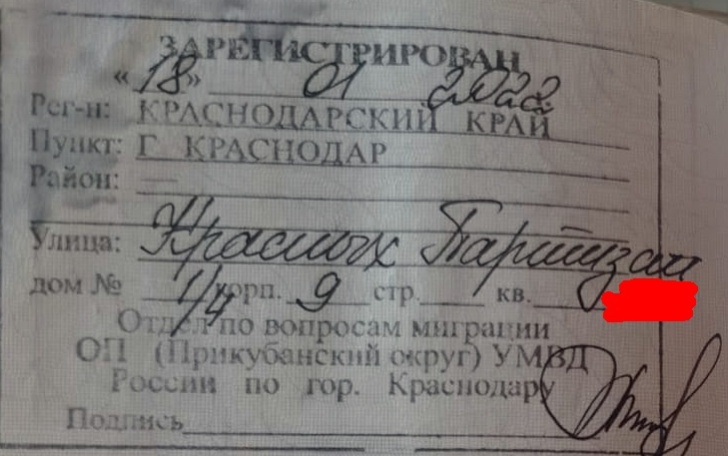 ЗАРЕГИСТРИРОВАН
«18» 01 2022
Рег-н: КРАСНОДАРСКИЙ КРАЙ
Пункт: Г КРАСНОДАР
Район:
Улица: Красных Партизан
дом № 1/4 корп. 9 стр. кв.
Отдел по вопросам миграции
ОП (Прикубанский округ) УМВД
России по гор. Краснодару
Подпись